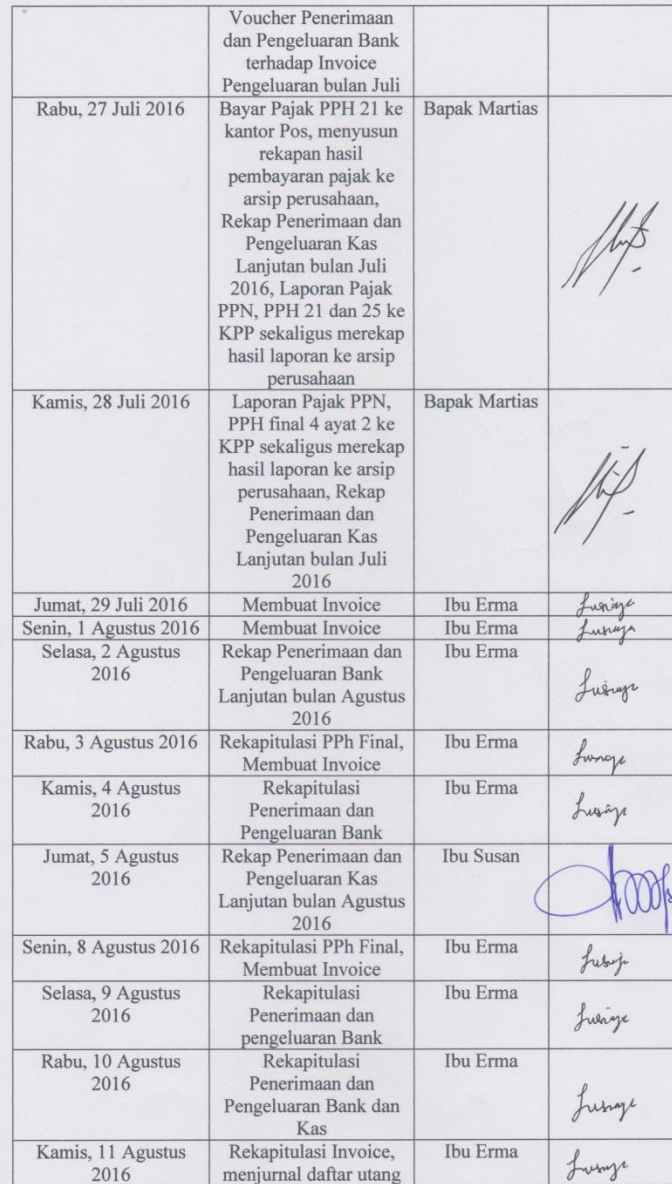 Voucher Penerimaan
dan Pengeluaran Bank
terhadap Invoice
Pengeluaran bulan Juli
Rabu, 27 Juli 2016
Bayar Pajak PPH 21 ke
kantor Pos, menyusun
rekapan hasil
pembayaran pajak ke
arsip perusahaan,
Rekap Penerimaan dan
Pengeluaran Kas
Lanjutan bulan Juli
2016, Laporan Pajak
PPN, PPH 21 dan 25 ke
KPP sekaligus merekap
hasil laporan ke arsip
perusahaan
Bapak Martias
Kamis, 28 Juli 2016
Laporan Pajak PPN,
PPH final 4 ayat 2 ke
KPP sekaligus merekap
hasil laporan ke arsip
perusahaan, Rekap
Penerimaan dan
Pengeluaran Kas
Lanjutan bulan Juli
2016
Bapak Martias
Jumat, 29 Juli 2016
Membuat Invoice
Ibu Erma
Senin, 1 Agustus 2016
Membuat Invoice
Ibu Erma
Selasa, 2 Agustus
2016
Rekap Penerimaan dan
Pengeluaran Bank
Lanjutan bulan Agustus
2016
Ibu Erma
Rabu, 3 Agustus 2016
Rekapitulasi PPh Final,
Membuat Invoice
Ibu Erma
Kamis, 4 Agustus
2016
Rekapitulasi
Penerimaan dan
Pengeluaran Bank
Ibu Erma
Jumat, 5 Agustus
2016
Rekap Penerimaan dan
Pengeluaran Kas
Lanjutan bulan Agustus
2016
Ibu Susan
Senin, 8 Agustus 2016
Rekapitulasi PPh Final,
Membuat Invoice
Ibu Erma
Selasa, 9 Agustus
2016
Rekapitulasi
Penerimaan dan
pengeluaran Bank
Ibu Erma
Rabu, 10 Agustus
2016
Rekapitulasi
Penerimaan dan
Pengeluaran Bank dan
Kas
Ibu Erma
Kamis, 11 Agustus
2016
Rekapitulasi Invoice,
menjurnal daftar utang
Ibu Erma